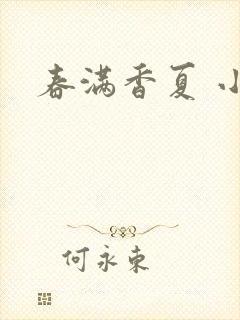 春满香夏 小
何永东